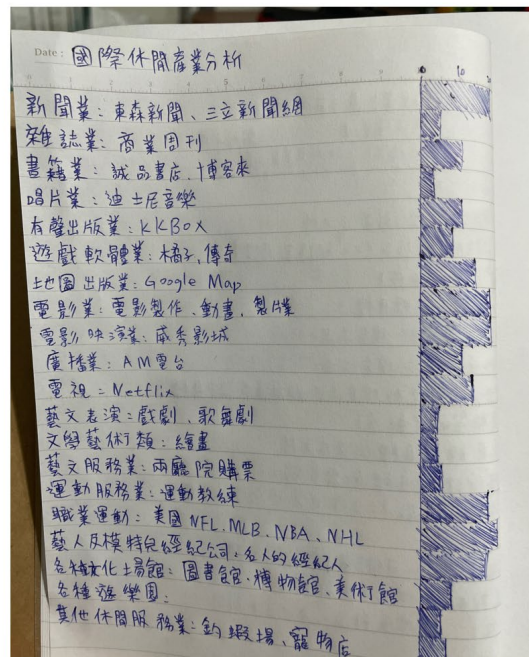 Date: 國際休閒產業分析
0 10
新聞業: 東森新聞、三立新聞網
雜誌業: 商業周刊
書籍業: 誠品書店、博客來
唱片業: 迪士尼音樂
有聲出版業: KKBOX
遊戲軟體業: 橘子、傳奇
地圖出版業: Google Map
電影業: 電影製作、動畫、製片業
電影映演業: 威秀影城
廣播業: AM電台
電視: Netflix
藝文表演: 戲劇、歌舞劇
文學藝術類: 繪畫
藝文服務業: 兩廳院購票
運動服務業: 運動教練
職業運動: 美國 NFL、MLB、NBA、NHL
藝人及模特兒經紀公司: 名人的經紀人
各種文化場館: 圖書館、博物館、美術館
各種遊樂園:
其他休閒服務業: 釣蝦場、寵物店